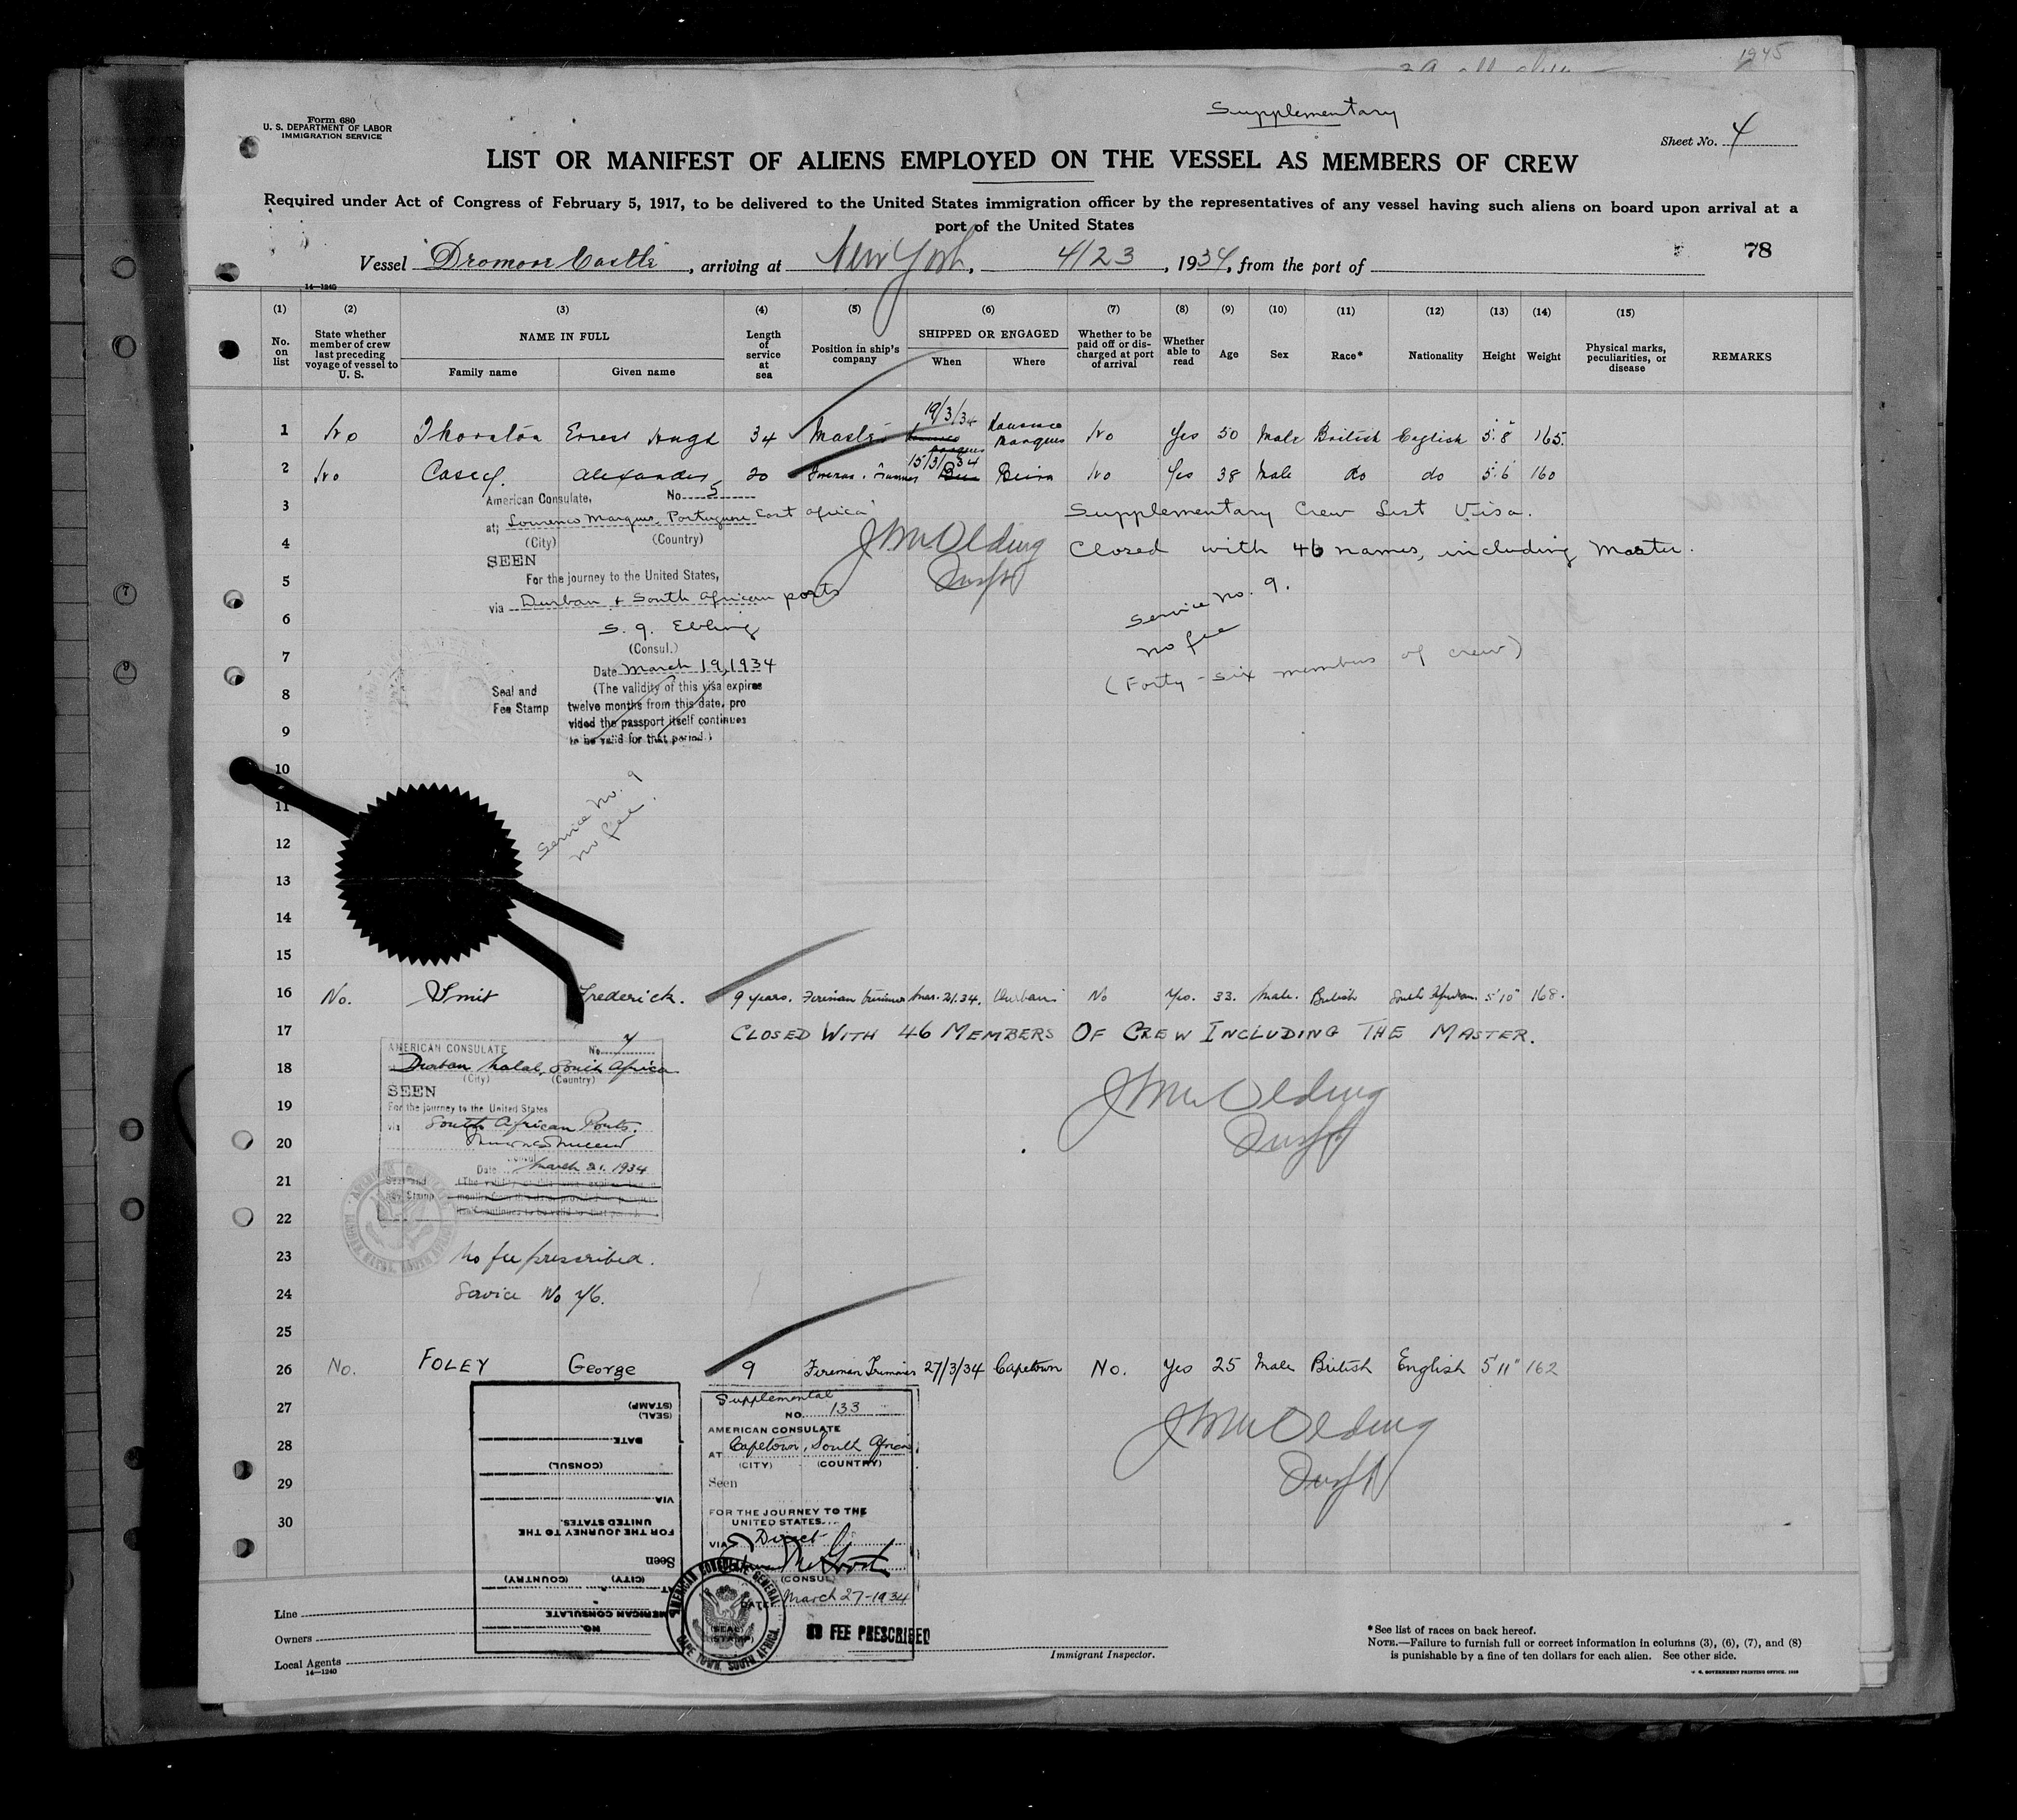 1945
Form 680
U. S. DEPARTMENT OF LABOR
IMMIGRATION SERVICE
Supplementary
Sheet No. 4
LIST OR MANIFEST OF ALIENS EMPLOYED ON THE VESSEL AS MEMBERS OF CREW
Required under Act of Congress of February 5, 1917, to be delivered to the United States immigration officer by the representatives of any vessel having such aliens on board upon arrival at a
port of the United States
78
Vessel Dromore Castle, arriving at New York, 4/23, 1934, from the port of
14—1240
(1) (2) (3) (4) (5) (6) (7) (8) (9) (10) (11) (12) (13) (14) (15)
No. on list
State whether member of crew last preceding voyage of vessel to U. S.
NAME IN FULL
Family name Given name
Length of service at sea
Position in ship's company
SHIPPED OR ENGAGED
When Where
Whether to be paid off or discharged at port of arrival
Whether able to read
Age Sex Race* Nationality Height Weight
Physical marks, peculiarities, or disease
REMARKS
1 No Thornton Ernest Hugh 34 Master 19/3/34 Lourenco Marques No Yes 50 Male British English 5.8" 165.
2 No Casey. Alexander 20 Fireman. Trimmer 15/3/34 Beira No Yes 38 Male do do 5.6 160
3
4
5
6
7
8
9
10
11
12
13
14
15
American Consulate, No. 5
at; Lourenco Marques, Portuguese East Africa
(City) (Country)
SEEN
For the journey to the United States,
via Durban + South African ports
S. G. Ebling
(Consul.)
Date March 19, 1934
Seal and
Fee Stamp
(The validity of this visa expires
twelve months from this date, pro
vided the passport itself continues
to be valid for that period.)
Service No. 9
No fee.
Supplementary Crew List Visa.
Closed with 46 names, including Master.
Service No. 9.
No fee
(Forty-six members of crew)
16 No. Smit Frederick. 9 years. Fireman trimmer Mar. 21.34. Durban No Yes. 33. Male. British South African. 5'10" 168.
17 CLOSED WITH 46 MEMBERS OF CREW INCLUDING THE MASTER.
18
19
20
21
22
23
24
25
AMERICAN CONSULATE No. 7
Durban Natal, South Africa
(City) (Country)
SEEN
For the journey to the United States
via South African Ports.
Date March 21. 1934
Seal and
Fee Stamp
No fee prescribed.
Service No 76.
26 No. FOLEY George 9 Fireman Trimmer 27/3/34 Capetown No. Yes 25 Male British English 5'11" 162
27
28
29
30
(SEAL)
(STAMP)
DATE
(CONSUL)
VIA
FOR THE JOURNEY TO THE
UNITED STATES.
Seen
(CITY) (COUNTRY)
AT
AMERICAN CONSULATE
NO.
Supplemental
NO. 133
AMERICAN CONSULATE
AT Capetown, South Africa
(CITY) (COUNTRY)
Seen
FOR THE JOURNEY TO THE
UNITED STATES...
VIA Direct
(CONSUL)
DATE March 27-1934
(SEAL)
(STAMP)
AMERICAN CONSULATE GENERAL
CAPE TOWN, SOUTH AFRICA.
NO FEE PRESCRIBED
Line
Owners
Local Agents
14—1240
Immigrant Inspector.
*See list of races on back hereof.
NOTE.—Failure to furnish full or correct information in columns (3), (6), (7), and (8)
is punishable by a fine of ten dollars for each alien. See other side.